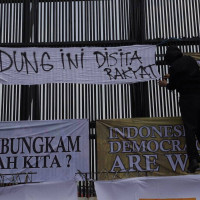 DUNG INI DISITA
RAKYAT!
BUNGKAM
AH KITA ?
INDONESI
DEMOCRA
ARE W